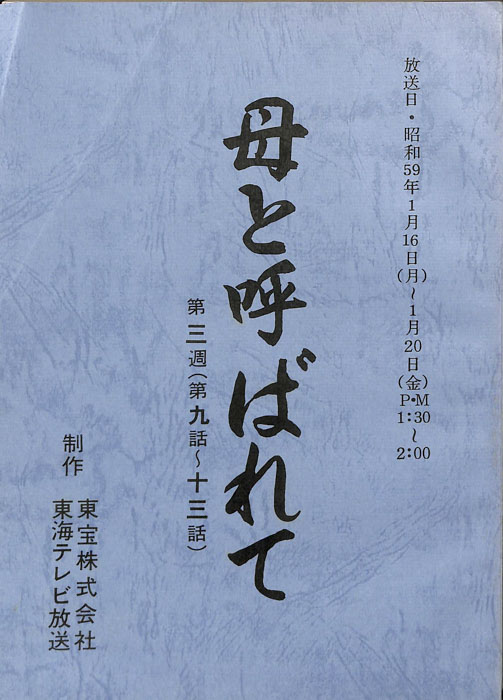 放送日・昭和59年1月16日(月)〜1月20日(金)
P・M
1:30
〜
2:00
母と呼ばれて
第三週(第九話〜十三話)
制作
東宝株式会社
東海テレビ放送